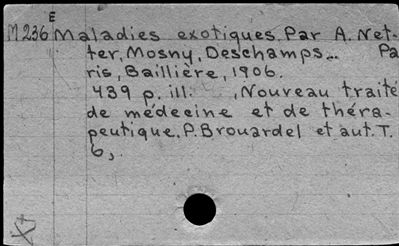 E
M236 Maladies exotiques. Par A. Net-
ter, Mosny, Deschamps... Pa
ris, Baillière, 1906.
439 p. ill. , Nouveau traité
de médecine et de théra-
peutique. P. Brouardel et aut. T.
6,